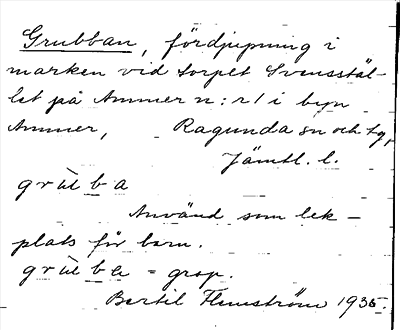 Grubban, fördjupning i
marken vid torpet Svensstäl-
let på Ammer n:r 1 i byn
Ammer, Ragunda sn och tg,
Jämtl. l.
Använd som lek-
plats för barn.
= grop.
Bertil Flemström 1935.